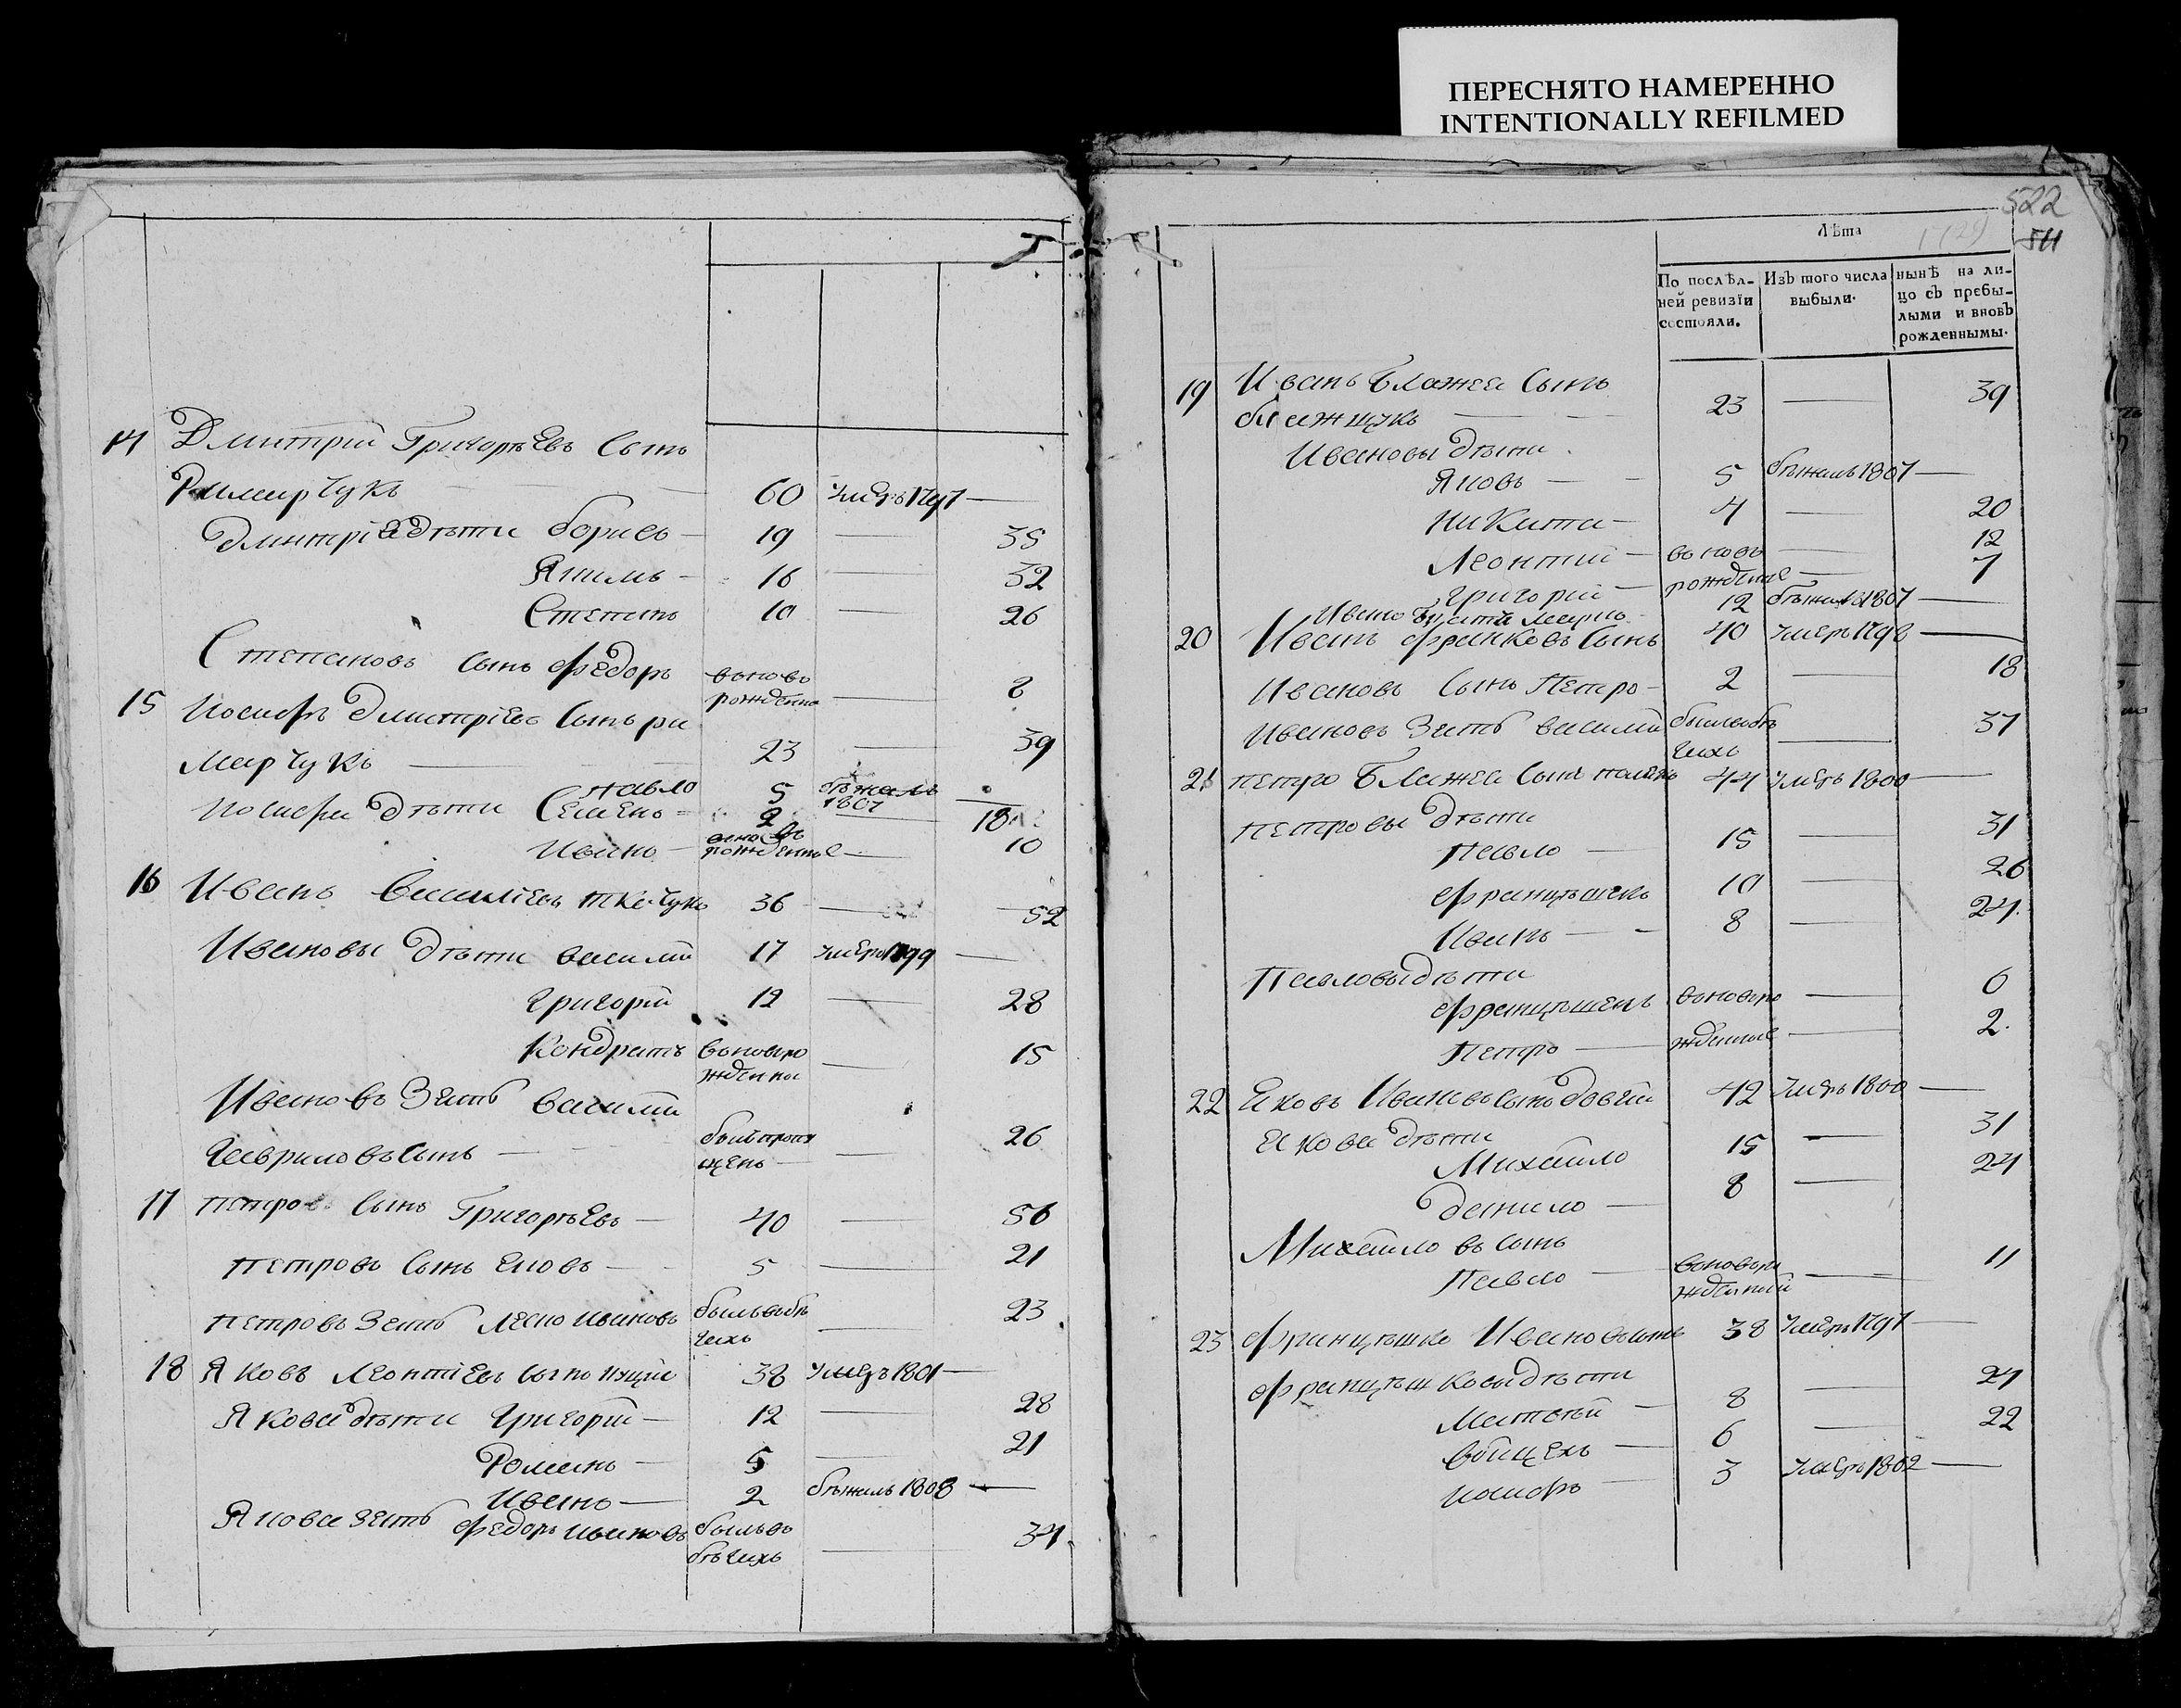 ПЕРЕСНЯТО НАМЕРЕННО
INTENTIONALLY REFILMED
14 Дмитрий Григорьевъ Сынъ
60 умеръ 1797 —
Дмитрія дѣти борисъ — 19 — 35
16 — 32
Степанъ 10 — 26
Степановъ сынъ Федоръ вьновь рожденно — 8
15 Иосифъ Дмитріевъ Сынъ ри
марчукъ — 23 — 39
павло 5 бѣжалъ 1807
Иосифа дѣти Семенъ 2 — 18
Иванъ — рожденные — 10
16 Иванъ Василіевъ ткачукъ 36 — 52
Ивановы дѣти василий 17 умеръ 1799 —
григорий 12 — 28
Кондратъ вьноворо
жденны — 15
Ивановъ Зять василий
гавриловъ Сынъ — былъ пропу
щенъ — 26
17 петровъ Сынъ Григорьевъ — 40 — 56
петровъ Сынъ — 5 — 21
петровъ Зять Ивановъ былъ вбѣ
гахъ — 23
18 Яковъ Леонтіевъ сынъ 38 умеръ 1801 —
Якова дѣти григорий — 12 — 28
Романъ — 5 — 21
Иванъ — 2 бѣжалъ 1808 —
Якова зять федоръ ивановъ былъ въ
бѣгахъ — 34
522
511
Лѣта
По послѣд-
ней ревизіи
состояли.
Изъ того числа
выбыли.
нынѣ на ли-
цо съ прибы-
лыми и вновь
рожденными.
19 Иванъ Блажея Сынъ
блажщукъ — 23 — 39
Ивановы дѣти
Яковъ — 5 бѣжалъ 1807 —
Никита — 4 — 20
Леонтий — вьновь — 12
григорий — рожденые — 7
12 бѣжалъ 1807 —
20 Иванъ франковъ Сынъ 40 умеръ 1798 —
Ивановъ Сынъ Петро — 2 — 18
Ивановъ Зять василий былъ вбѣ
гахъ — 37
21 петро Блажея Сынъ 44 умеръ 1800 —
петровы дѣти
Павло — 15 — 31
францѣшекъ 10 — 26
Иванъ — 8 — 24
Павловы дѣти
францѣшекъ вьноворо — 6
Петро — жденные — 2
22 Яковъ Ивановъ сынъ 42 умеръ 1800 —
Якова дѣти
Михайло 15 — 31
данило — 8 — 24
Михайловъ сынъ
Павло — вьноворо
жденный — 11
23 францѣшко Ивановъ сынъ 38 умеръ 1797 —
францѣшковы дѣти
Матвѣй — 8 — 24
войцехъ — 6 — 22
иосифъ — 3 умеръ 1802 —